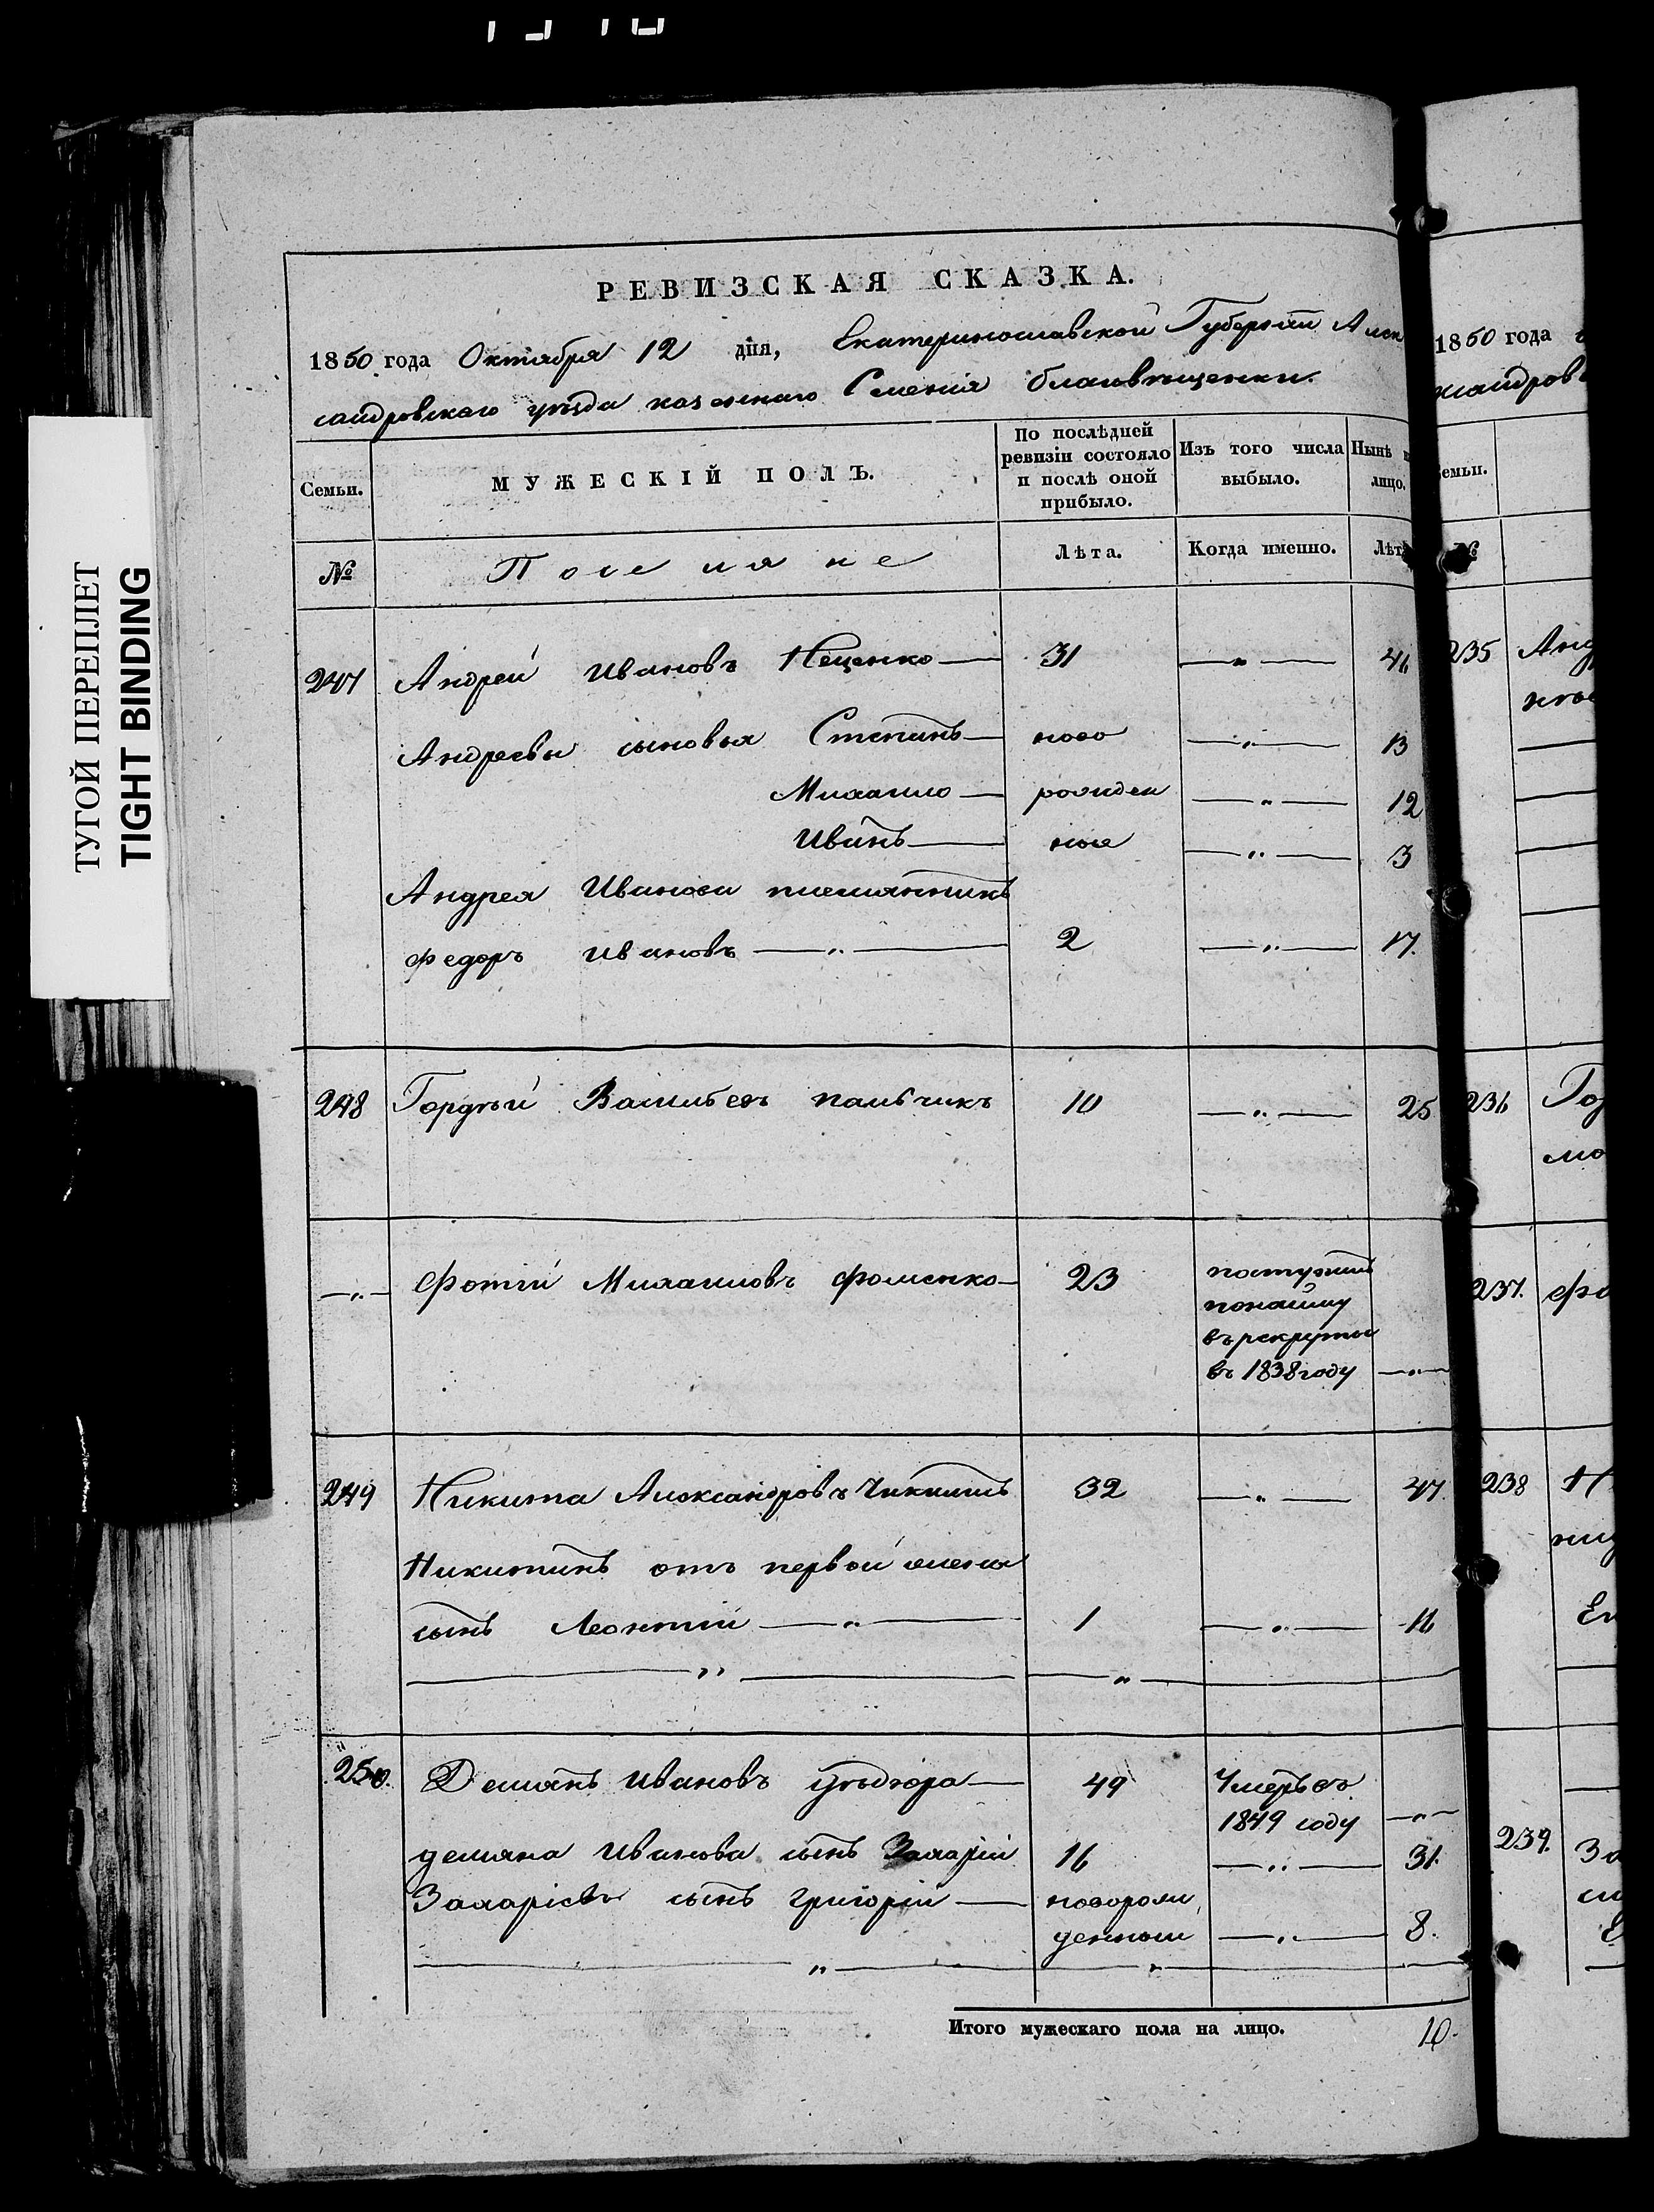 ТУГОЙ ПЕРЕПЛЕТ
TIGHT BINDING
РЕВИЗСКАЯ СКАЗКА.
1850 года Октября 12 дня, Екатеринославской Губерніи Алек
сандровскаго уѣзда казеннаго Селенія благовѣщенки.
Семьи. МУЖЕСКІЙ ПОЛЪ. По послѣдней ревизіи состояло и послѣ оной прибыло. Изъ того числа выбыло. Нынѣ лицо.
№ Поселяне Лѣта. Когда именно. Лѣт
247 Андрей Ивановъ Неценко — 31 — „ — 46
Андреевы сыновья Степанъ — ново — „ — 13
Михаило — рожден — „ — 12
Иванъ — ные — „ — 3
Андрея Иванова племянникъ
Федоръ Ивановъ — „ — 2 — „ — 17.
248 Гордѣй Васильевъ пальчикъ 10 — „ — 25
— „ — Фотій Михаиловъ фоменко — 23 поступилъ
понайму
въ рекруты
въ 1838 году — „ —
249 Никита Александровъ 32 — „ — 47.
Никитинъ отъ первой жены
сынъ Леонтій — „ — 1 — „ — 16
— „ — — „ —
250. Демьянъ Ивановъ — 49 Умеръ въ
1849 году — „ —
демьяна Иванова сынъ Захарій 16 — „ — 31.
Захаріевъ сынъ григорій — еоворож
денный — „ — 8.
— „ — „ —
Итого мужескаго пола на лицо. 10.
1850 года
ксандров
семьи.
№
235 Анд
236 Гор
237. фо
238 Н
239. За